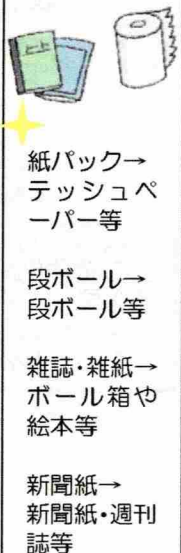 紙パック→
テッシュペ
ーパー等
段ボール→
段ボール等
雑誌・雑紙→
ボール箱や
絵本等
新聞紙→
新聞紙・週刊
誌等